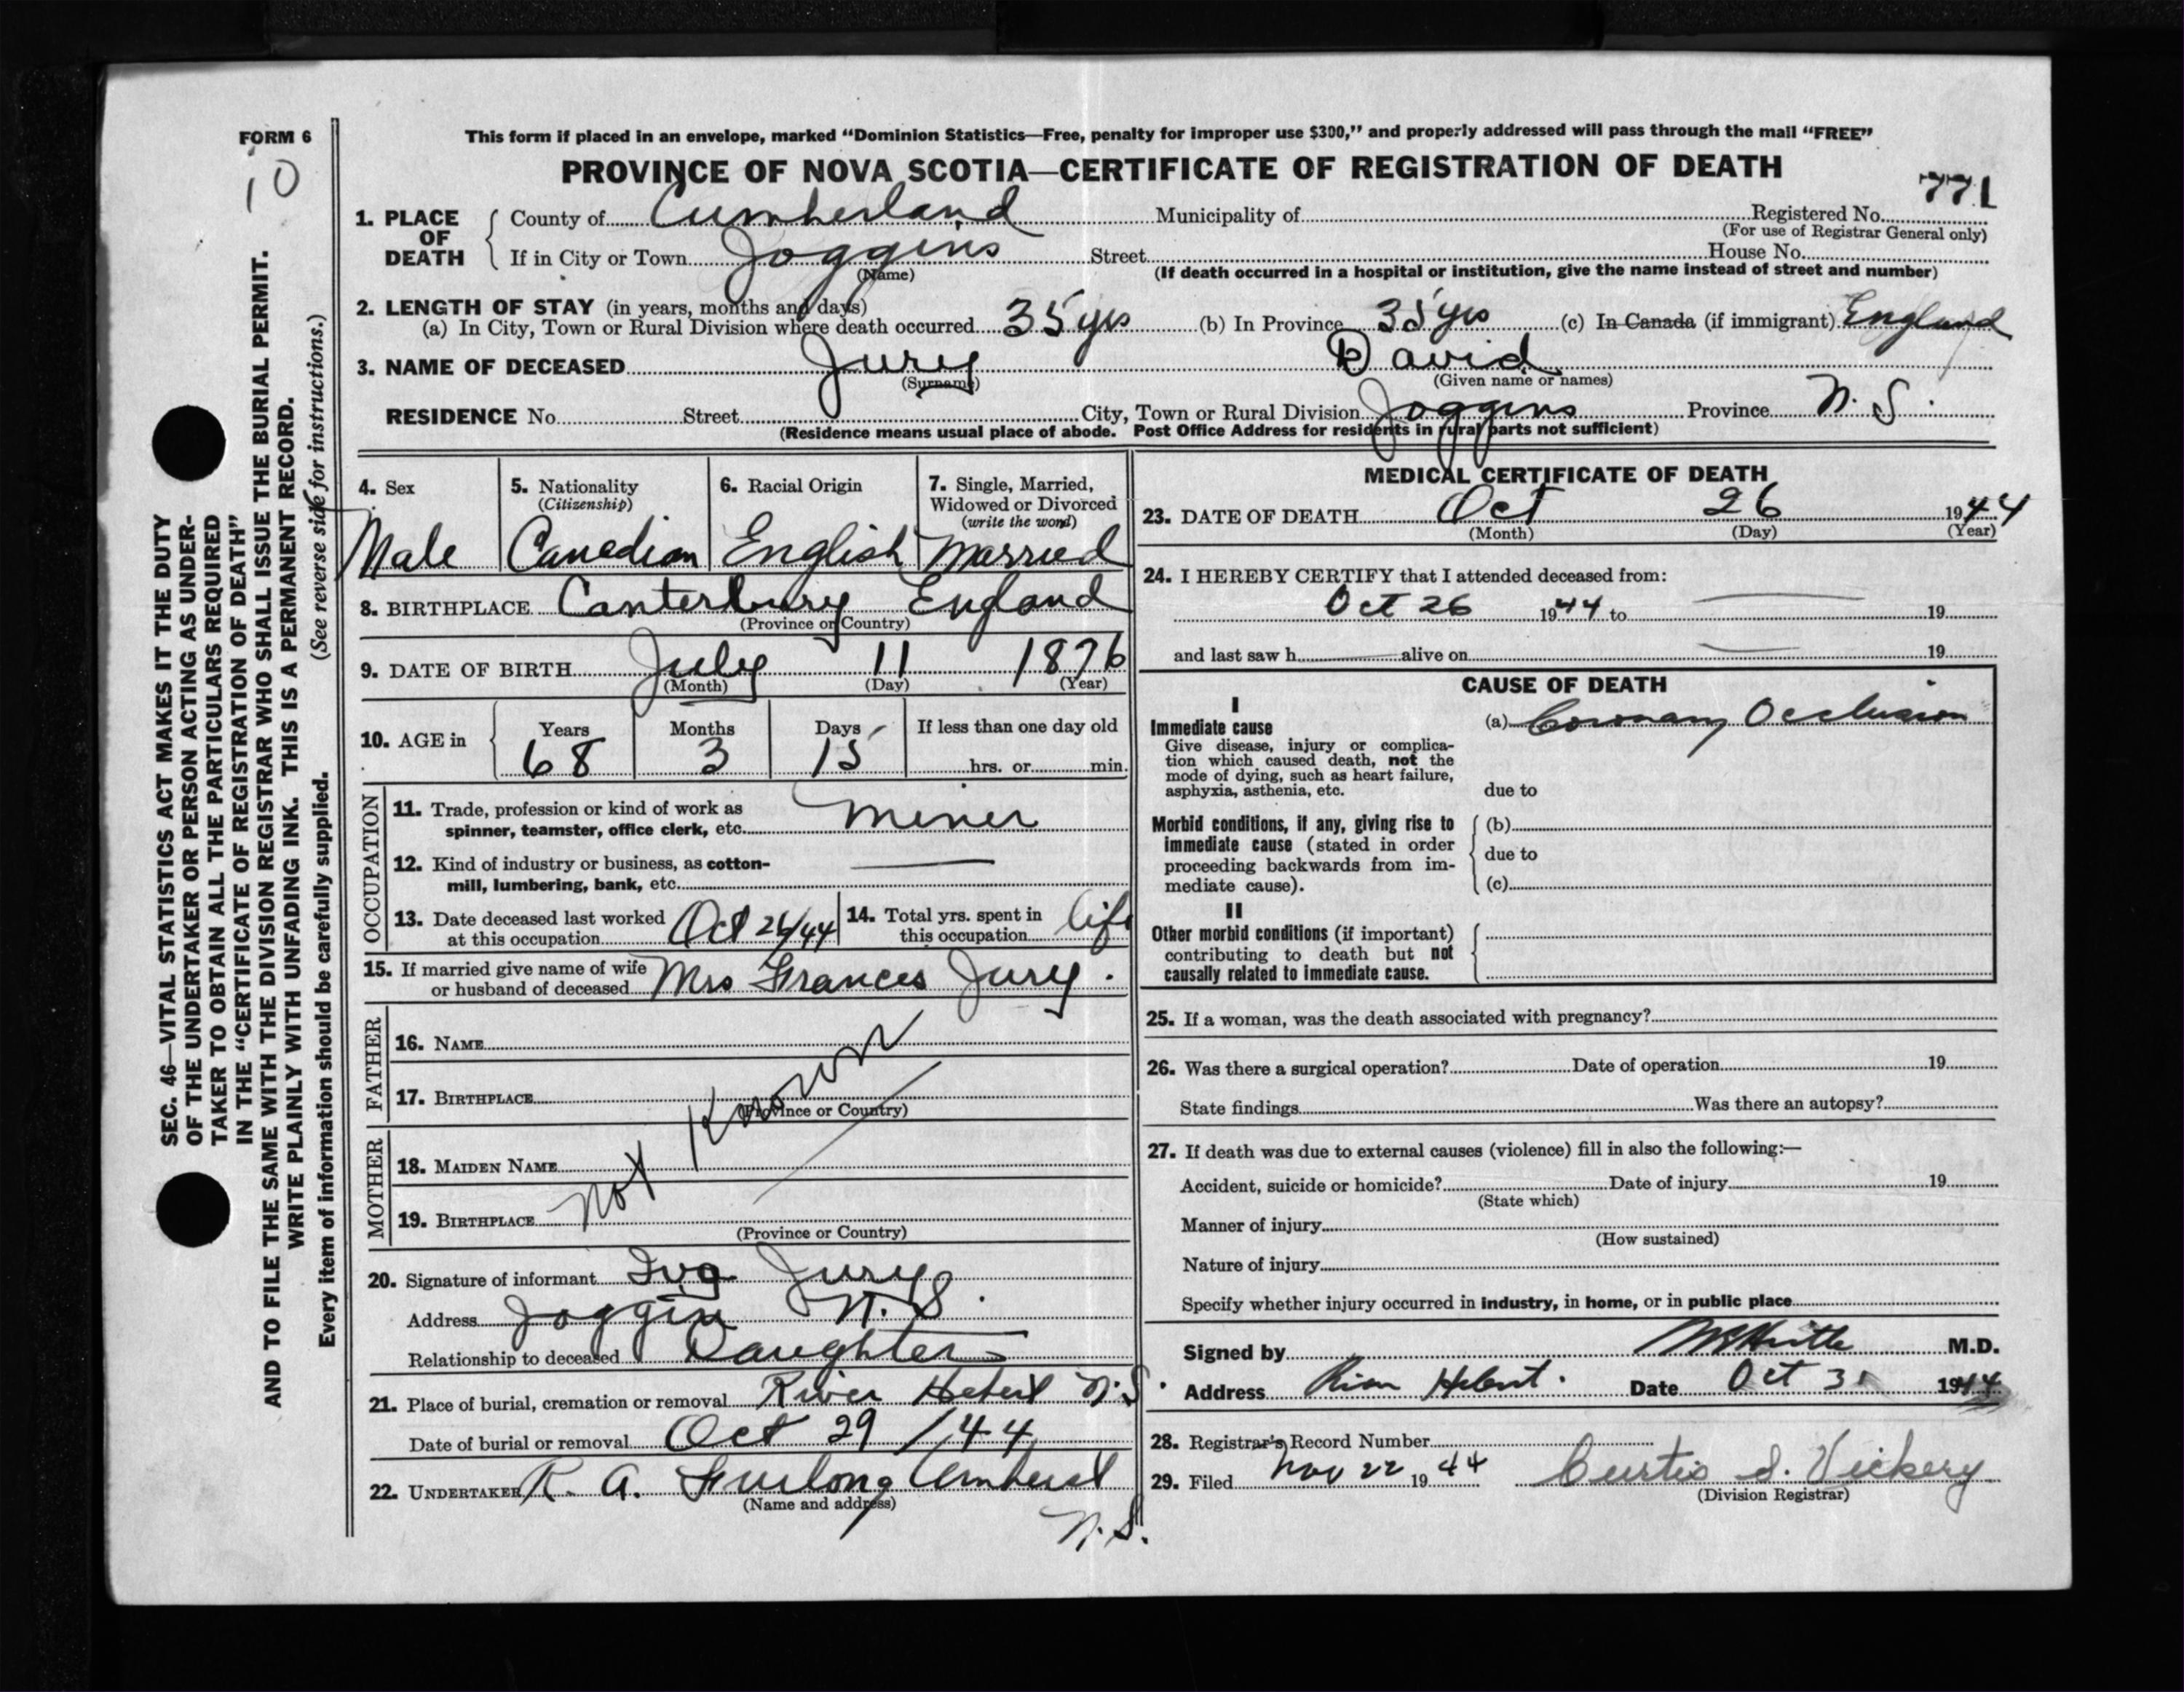 FORM 6
10
This form if placed in an envelope, marked "Dominion Statistics—Free, penalty for improper use $300," and properly addressed will pass through the mail "FREE"
PROVINCE OF NOVA SCOTIA—CERTIFICATE OF REGISTRATION OF DEATH
771
1. PLACE OF DEATH County of Cumberland Municipality of Registered No.
(For use of Registrar General only)
If in City or Town Joggins Street House No.
(Name) (If death occurred in a hospital or institution, give the name instead of street and number)
2. LENGTH OF STAY (in years, months and days)
(a) In City, Town or Rural Division where death occurred 35 yrs (b) In Province 35 yrs (c) In Canada (if immigrant) England
3. NAME OF DECEASED Jury David
(Surname) (Given name or names)
RESIDENCE No. Street City, Town or Rural Division Joggins Province N. S.
(Residence means usual place of abode. Post Office Address for residents in rural parts not sufficient)
4. Sex 5. Nationality 6. Racial Origin 7. Single, Married,
(Citizenship) Widowed or Divorced
(write the word)
Male Canadian English Married
8. BIRTHPLACE Canterbury England
(Province or Country)
9. DATE OF BIRTH July 11 1876
(Month) (Day) (Year)
10. AGE in Years Months Days If less than one day old
68 3 15 hrs. or min.
OCCUPATION
11. Trade, profession or kind of work as
spinner, teamster, office clerk, etc. Miner
12. Kind of industry or business, as cotton-
mill, lumbering, bank, etc.
13. Date deceased last worked
at this occupation Oct 26/44
14. Total yrs. spent in
this occupation life
15. If married give name of wife
or husband of deceased Mrs Frances Jury.
FATHER
16. NAME
17. BIRTHPLACE
(Province or Country)
Not Known
MOTHER
18. MAIDEN NAME
19. BIRTHPLACE
(Province or Country)
20. Signature of informant Iva Jury
Address Joggin N.S.
Relationship to deceased Daughter
21. Place of burial, cremation or removal River Hebert N.S.
Date of burial or removal Oct 29/44
22. UNDERTAKER R. A. Furlong Amherst
(Name and address)
N. S.
MEDICAL CERTIFICATE OF DEATH
23. DATE OF DEATH Oct 26 1944
(Month) (Day) (Year)
24. I HEREBY CERTIFY that I attended deceased from:
Oct 26 1944 to 19
and last saw h alive on 19
CAUSE OF DEATH
I
Immediate cause (a) Coronary Occlusion
Give disease, injury or complica-
tion which caused death, not the
mode of dying, such as heart failure,
asphyxia, asthenia, etc. due to
Morbid conditions, if any, giving rise to (b)
immediate cause (stated in order due to
proceeding backwards from im-
mediate cause). (c)
II
Other morbid conditions (if important)
contributing to death but not
causally related to immediate cause.
25. If a woman, was the death associated with pregnancy?
26. Was there a surgical operation? Date of operation 19
State findings Was there an autopsy?
27. If death was due to external causes (violence) fill in also the following:—
Accident, suicide or homicide? Date of injury 19
(State which)
Manner of injury
(How sustained)
Nature of injury
Specify whether injury occurred in industry, in home, or in public place
Signed by M.D.
Address River Hebert. Date Oct 31 1944
28. Registrar's Record Number
29. Filed Nov 22 1944 Curtis S. Vickery
(Division Registrar)
SEC. 46—VITAL STATISTICS ACT MAKES IT THE DUTY
OF THE UNDERTAKER OR PERSON ACTING AS UNDER-
TAKER TO OBTAIN ALL THE PARTICULARS REQUIRED
IN THE "CERTIFICATE OF REGISTRATION OF DEATH"
AND TO FILE THE SAME WITH THE DIVISION REGISTRAR WHO SHALL ISSUE THE BURIAL PERMIT.
WRITE PLAINLY WITH UNFADING INK. THIS IS A PERMANENT RECORD.
Every item of information should be carefully supplied. (See reverse side for instructions.)